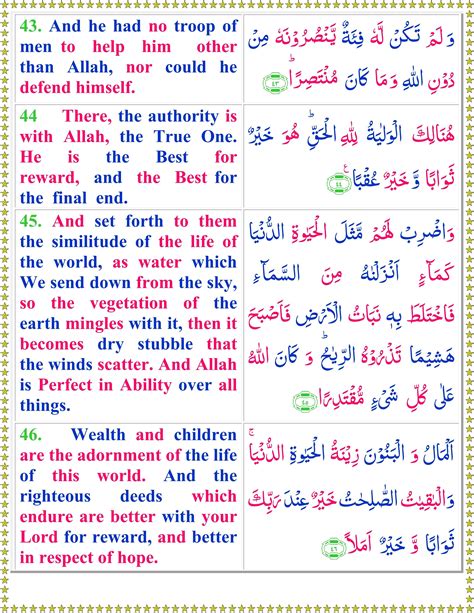 43. And he had no troop of
men to help him other
than Allah, nor could he
defend himself.
وَلَمْ تَكُنْ لَّهٗ فِئَةٌ يَّنْصُرُوْنَهٗ مِنْ
دُوْنِ اللّٰهِ وَمَا كَانَ مُنْتَصِرًا ؕ ﴿٤٣﴾
44 There, the authority is
with Allah, the True One.
He is the Best for
reward, and the Best for
the final end.
هُنَالِكَ الْوَلَايَةُ لِلّٰهِ الْحَقِّ ؕ هُوَ خَيْرٌ
ثَوَابًا وَّ خَيْرٌ عُقْبًا ﴿٤٤﴾
45. And set forth to them
the similitude of the life of
the world, as water which
We send down from the sky,
so the vegetation of the
earth mingles with it, then it
becomes dry stubble that
the winds scatter. And Allah
is Perfect in Ability over all
things.
وَاضْرِبْ لَهُمْ مَّثَلَ الْحَيٰوةِ الدُّنْيَا
كَمَآءٍ اَنْزَلْنٰهُ مِنَ السَّمَآءِ
فَاخْتَلَطَ بِهٖ نَبَاتُ الْاَرْضِ فَاَصْبَحَ
هَشِيْمًا تَذْرُوْهُ الرِّيٰحُ ؕ وَ كَانَ اللّٰهُ
عَلٰى كُلِّ شَیْءٍ مُّقْتَدِرًا ﴿٤٥﴾
46. Wealth and children
are the adornment of the life
of this world. And the
righteous deeds which
endure are better with your
Lord for reward, and better
in respect of hope.
اَلْمَالُ وَ الْبَنُوْنَ زِيْنَةُ الْحَيٰوةِ الدُّنْيَا ۚ
وَالْبٰقِيٰتُ الصّٰلِحٰتُ خَيْرٌ عِنْدَ رَبِّكَ
ثَوَابًا وَّ خَيْرٌ اَمَلًا ﴿٤٦﴾